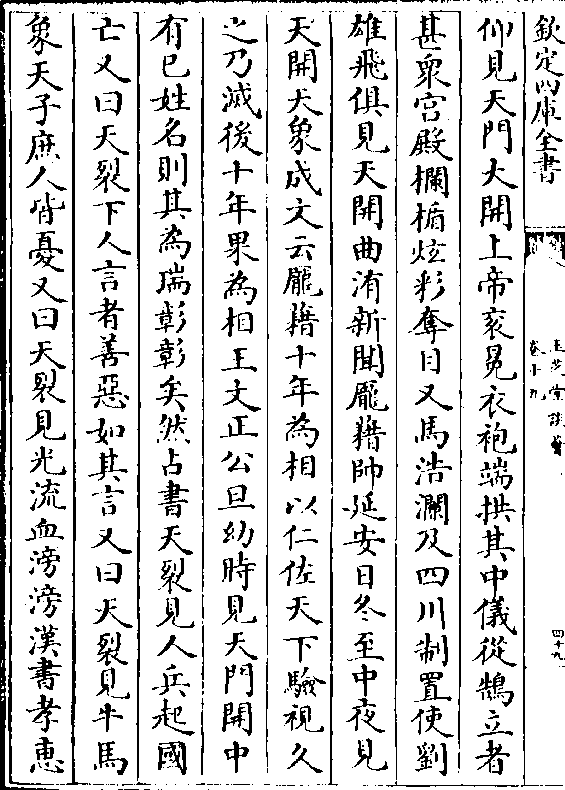 欽定四庫全書
玉芝堂談薈
卷十九
四十九
仰見天門大開上帝衮冕衣袍端拱其中儀從鵠立者
甚衆宫殿欄楯炫彩奪目又馬浩瀾及四川制置使劉
雄飛俱見天開曲洧新聞龎籍帥延安日冬至中夜見
天開大象成文云龎籍十年為相以仁佐天下驗視久
之乃滅後十年果為相王文正公旦幼時見天門開中
有已姓名則其為瑞彰彰矣然占書天裂見人兵起國
亡又曰天裂下人言者善惡如其言又曰天裂見牛馬
象天子庶人皆憂又曰天裂見光流血滂滂漢書孝惠